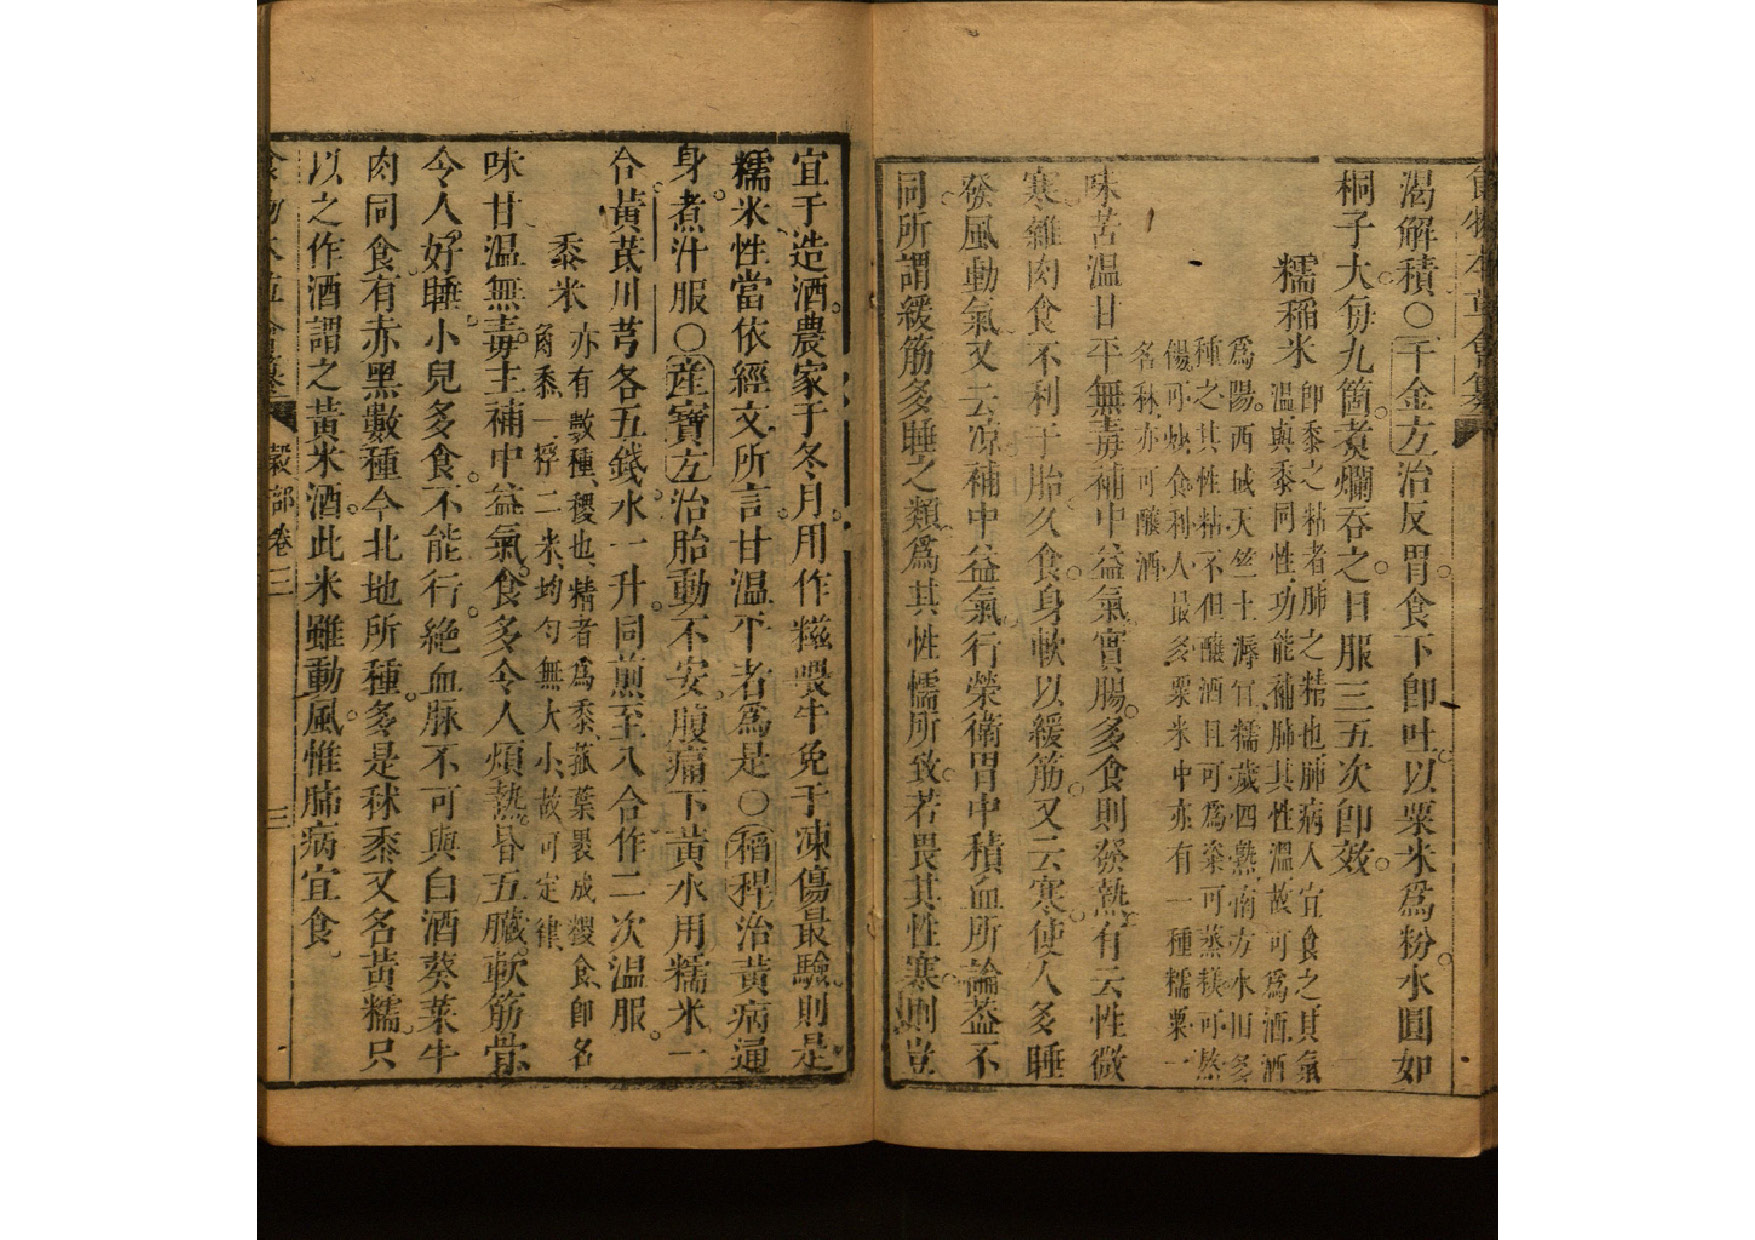 渴解積〇千金方治反胃食下卽吐以粟米爲粉水圓如
桐子大每九箇煮爛吞之日服三五次卽效
糯稻米
卽黍之粘者肺之精也肺病人宜食之其氣
溫與黍同性功能補肺其性溫故可爲酒酒
爲陽西域天竺土溽宜糯歲四熟南方水田多
種之其性粘不但釀酒且可爲粢可蒸糕可熬
餳可炒食利人最多粟米中亦有一種糯粟一
名秫亦可釀酒
味苦溫甘平無毒補中益氣實腸多食則發熱有云性微
寒雜肉食不利于胎久食身軟以緩筋又云寒使人多睡
發風動氣又云凉補中益氣行榮衛胃中積血所論蓋不
同所謂緩筋多睡之類爲其性懦所致若畏其性寒則豈
宜于造酒農家于冬月用作糍喂牛免于凍傷最驗則是
糯米性當依經文所言甘温平者爲是〇稻稈治黃病通
身煮汁服〇産寶方治胎動不安腹痛下黃水用糯米一
合黃芪川芎各五錢水一升同煎至八合作二次溫服
黍米
亦有數種稷也精者爲黍菰葉裹成糉食卽名
角黍一稃二米均勻無大小故可定律
味甘温無毒主補中益氣食多令人煩熱昏五臟軟筋骨
令人好睡小兒多食不能行絶血脉不可與白酒葵菜牛
肉同食有赤黑數種今北地所種多是秫黍又名黃糯只
以之作酒謂之黃米酒此米雖動風惟肺病宜食
穀部卷二
三